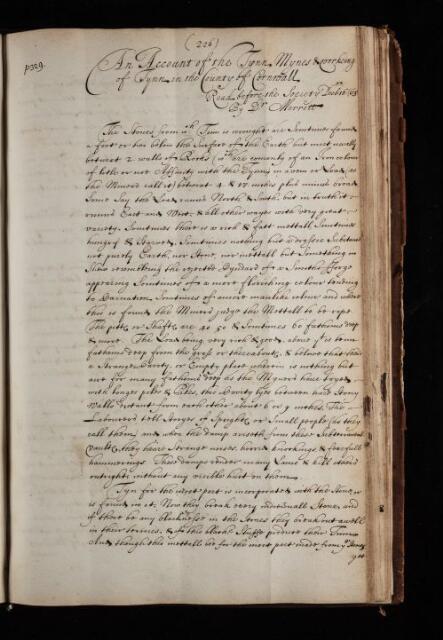 (226)
p329.
An Account of the Tynn Mynes & working
of Tynn in the County of Cornwall
Read before the Society
By Dr Merrett
The Stones from wch Tynn is wrought are Somtimes found
a foot or two below the Surface of the Earth but most usually
betwixt 2 walls of Rocks (wch are comonly of an Iron colour
of little or not Affinity with the Tynn) in a vein or Load (as
the Miners call it) betwixt 4 & 18 inches
Some say the Load runns North & South, but in truth it
runns East and West, & all other wayes with very great
variety. Somtimes there is a rich & fatt mettall Somtimes
hungry & Somtimes nothing but a drossie Substance
not purely Earth, nor Stone, nor mettall but Something in
Shew resembling the rejected of a Smiths fforge
appearing Somtimes of a more flurishing colour tending
to Carnation Somtimes of a more manlike colour, and where
this is found the Miners judge the Mettall to be ripe
The pitts or Shafts are 40 50 & Somtimes 60 fathoms deep
& more. The Load being very rich & good, above yt is tenn
fathoms deep from the grass or thereabouts, & below that there
a Strange Cavity, or Empty place wherein is nothing but
aire for many fathoms deep as the Myners have tryed
with long poles & Pikes, the Cavity lyes between hard Stony
Walls distant from each other about 6 or 9 inches. The
Labourers tell Storyes of Sprights, or Small people (as they
call them) and when the damp ariseth from these Subterranean
Vaults, they heare Strange noises, horrid knockings & fearfull
hammerings These damps render many Lame & kill others
outright, without any visible hurt on them
Tyn for the most part is incorporated with the Stone, or
is found in it. Now they break every individuall Stone, and
if there be any blackness in the Stones they break out
in their termes, & the black Stuffe
And though this mettall be for the most part made from ye Stones
yet